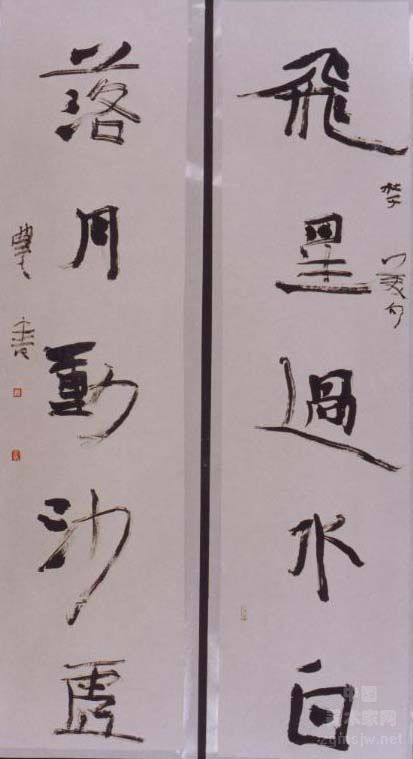 飛星過水白
落月動沙虛
書
中国
美术家网
zgmsjw.net